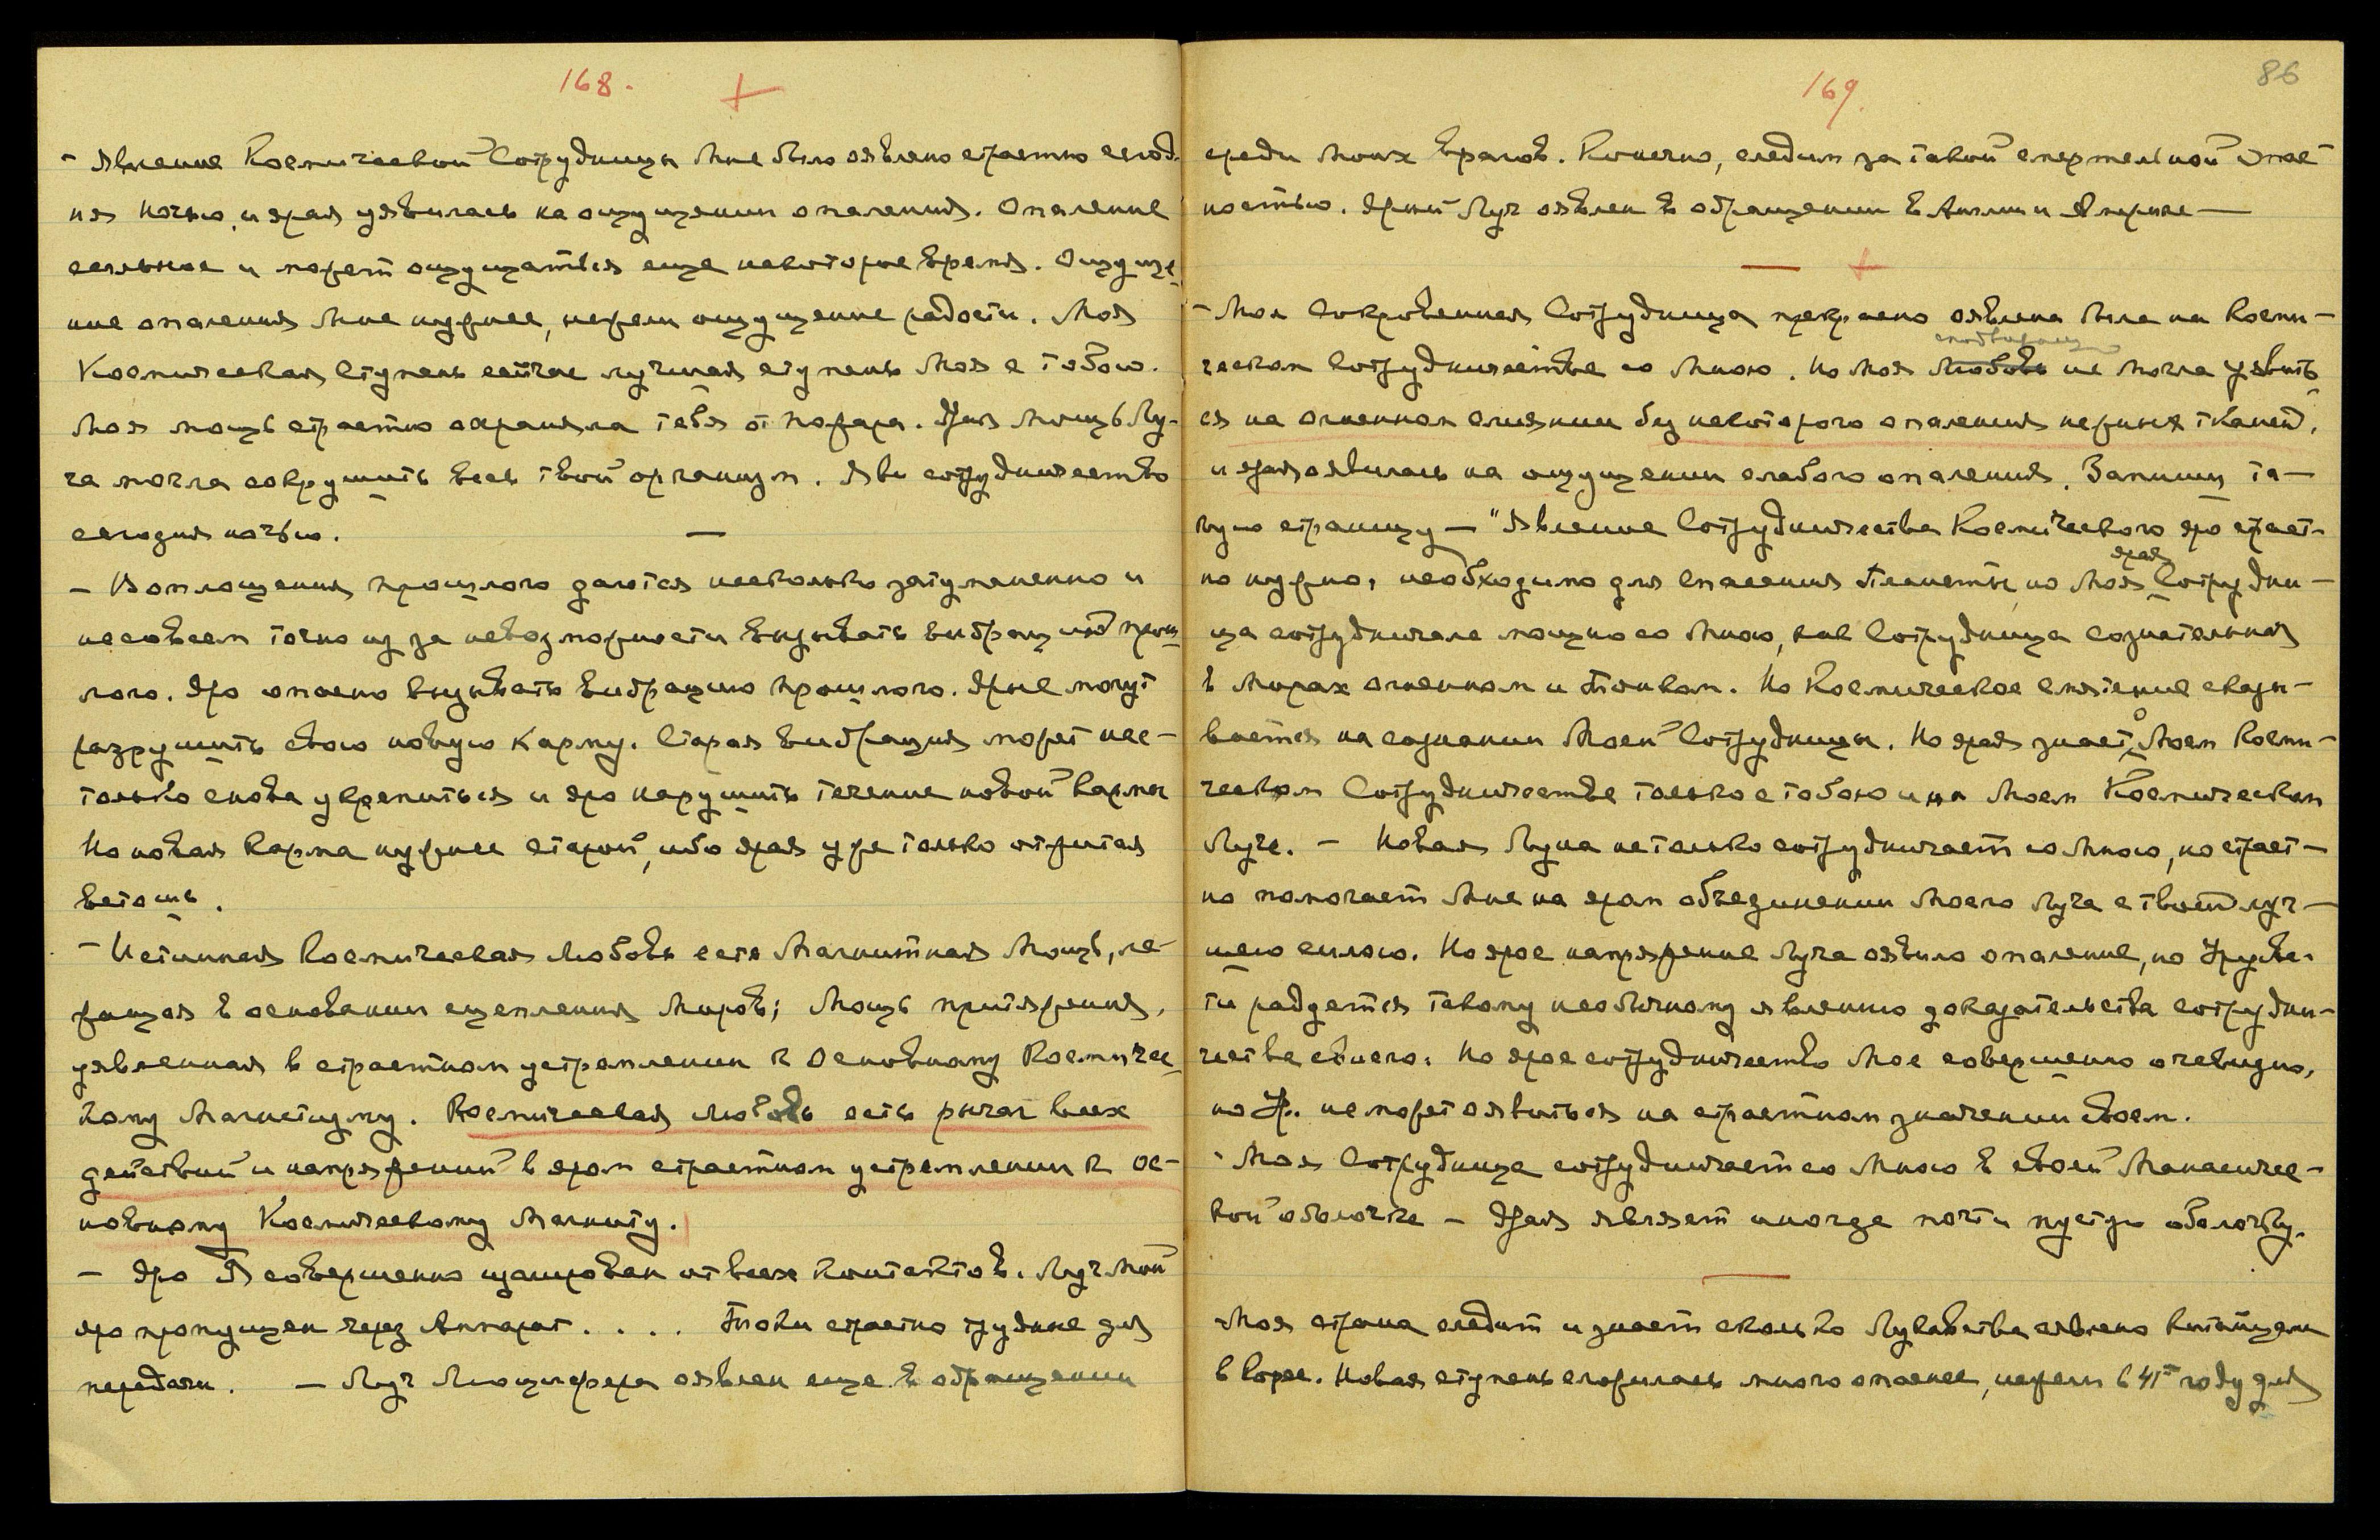 168. +
- Явление Космической Сотрудницы Мне было оявлено страстно сегод-
ня ночью, и ярая уявилась на ощущении опаления. Опаление
сильное и может ощущаться еще некоторое время. Ощуще-
ние опаления Мне нужнее, нежели ощущение радости. Моя
Космическая ступень сейчас лучшая ступень Моя с тобою.
Моя мощь страстно охраняла тебя от пожара. Ярая Мощь Лу-
ча могла сокрушить весь твой организм. Яви сотрудничество
сегодня ночью. —
- Воплощения прошлого даются несколько затуманенно и
несовсем точно из за невозможности вызывать вибраций прош-
лого. Яро опасно вызывать вибрацию прошлого. Ярые могут
разрушить свою новую Карму. Старая вибрация может нес-
только снова укрепиться и яро нарушить течение новой кармы
Но новая карма нужнее старой, ибо ярая уже только отжитая
ветошь.
- Истинная Космическая Любовь есть Магнитная Мощь, ле-
жащая в основании сцепления Миров; Мощь притяжения,
уявленная в страстном устремлении к Основному Космичес-
кому Магнетизму. Космическая любовь есть рычаг всех
действий и напряжений в яром страстном устремлении к Ос-
новному Космическому Магниту.
- Яро Я совершенно изолирован от всех контактов. Луч Мой
яро пропущен через Аппарат. . . . Токи страстно трудные для
передачи. - Луч Люцифера оявлен еще в обращении
169. 86
среди Моих врагов. Конечно, следим за такой смертельной опас-
ностью. Ярый Луч оявлен в обращении в Англии и Америке —
— +
- Моя Сокровенная Сотрудница прекрасно оявлена была на Косми-
ческом Сотрудничестве со Мною. Но Моя Любовь не могла уявить-
ся на огненном слиянии без некоторого опаления нежных тканей,
и ярая оявилась на ощущении слабого опаления. Запиши та-
кую страницу — "Явление Сотрудничества Космического яро страст-
но нужно, необходимо для спасения Планеты, но Моя ярая Сотрудни-
ца сотрудничала мощно со Мною, как Сотрудница сознательная
в Мирах огненном и Тонком. Но Космическое смятение сказы-
вается на сознании Моей Сотрудницы. Но ярая знает о Моем Косми-
ческом Сотрудничестве только с тобою и на Моем Космическом
Луче. - Новая Луна нетолько сотрудничает со Мною, но страст-
но помогает Мне на яром объединении Моего Луча с твоей луч-
шею силою. Но ярое напряжение Луча оявило опаление, но Урусва-
ти радуется такому необычному явлению доказательства сотрудни-
чества своего. Но ярое сотрудничество Мое совершенно очевидно,
но Ур. не может оявиться на страстном значении своем.
- Моя Сотрудница сотрудничает со Мною в своей Манасичес-
кой оболочке - Ярая являет иногда почти пустую оболочку.
—
Моя страна следит и знает сколько Лукавства оявлено китайцами
в Корее. Новая ступень сложилась много опаснее, нежели в 41м году для